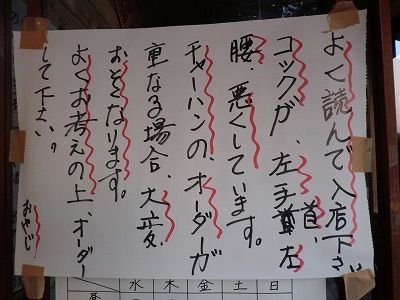 よく読んで入店下さ
コックが、左手首、左
腰、悪くしています。
チャーハンの、オーダーが
重なる場合、大変、
おそくなります。
よくお考えの上、オーダー
して下さい。
おやじ
水 木 金 土 日